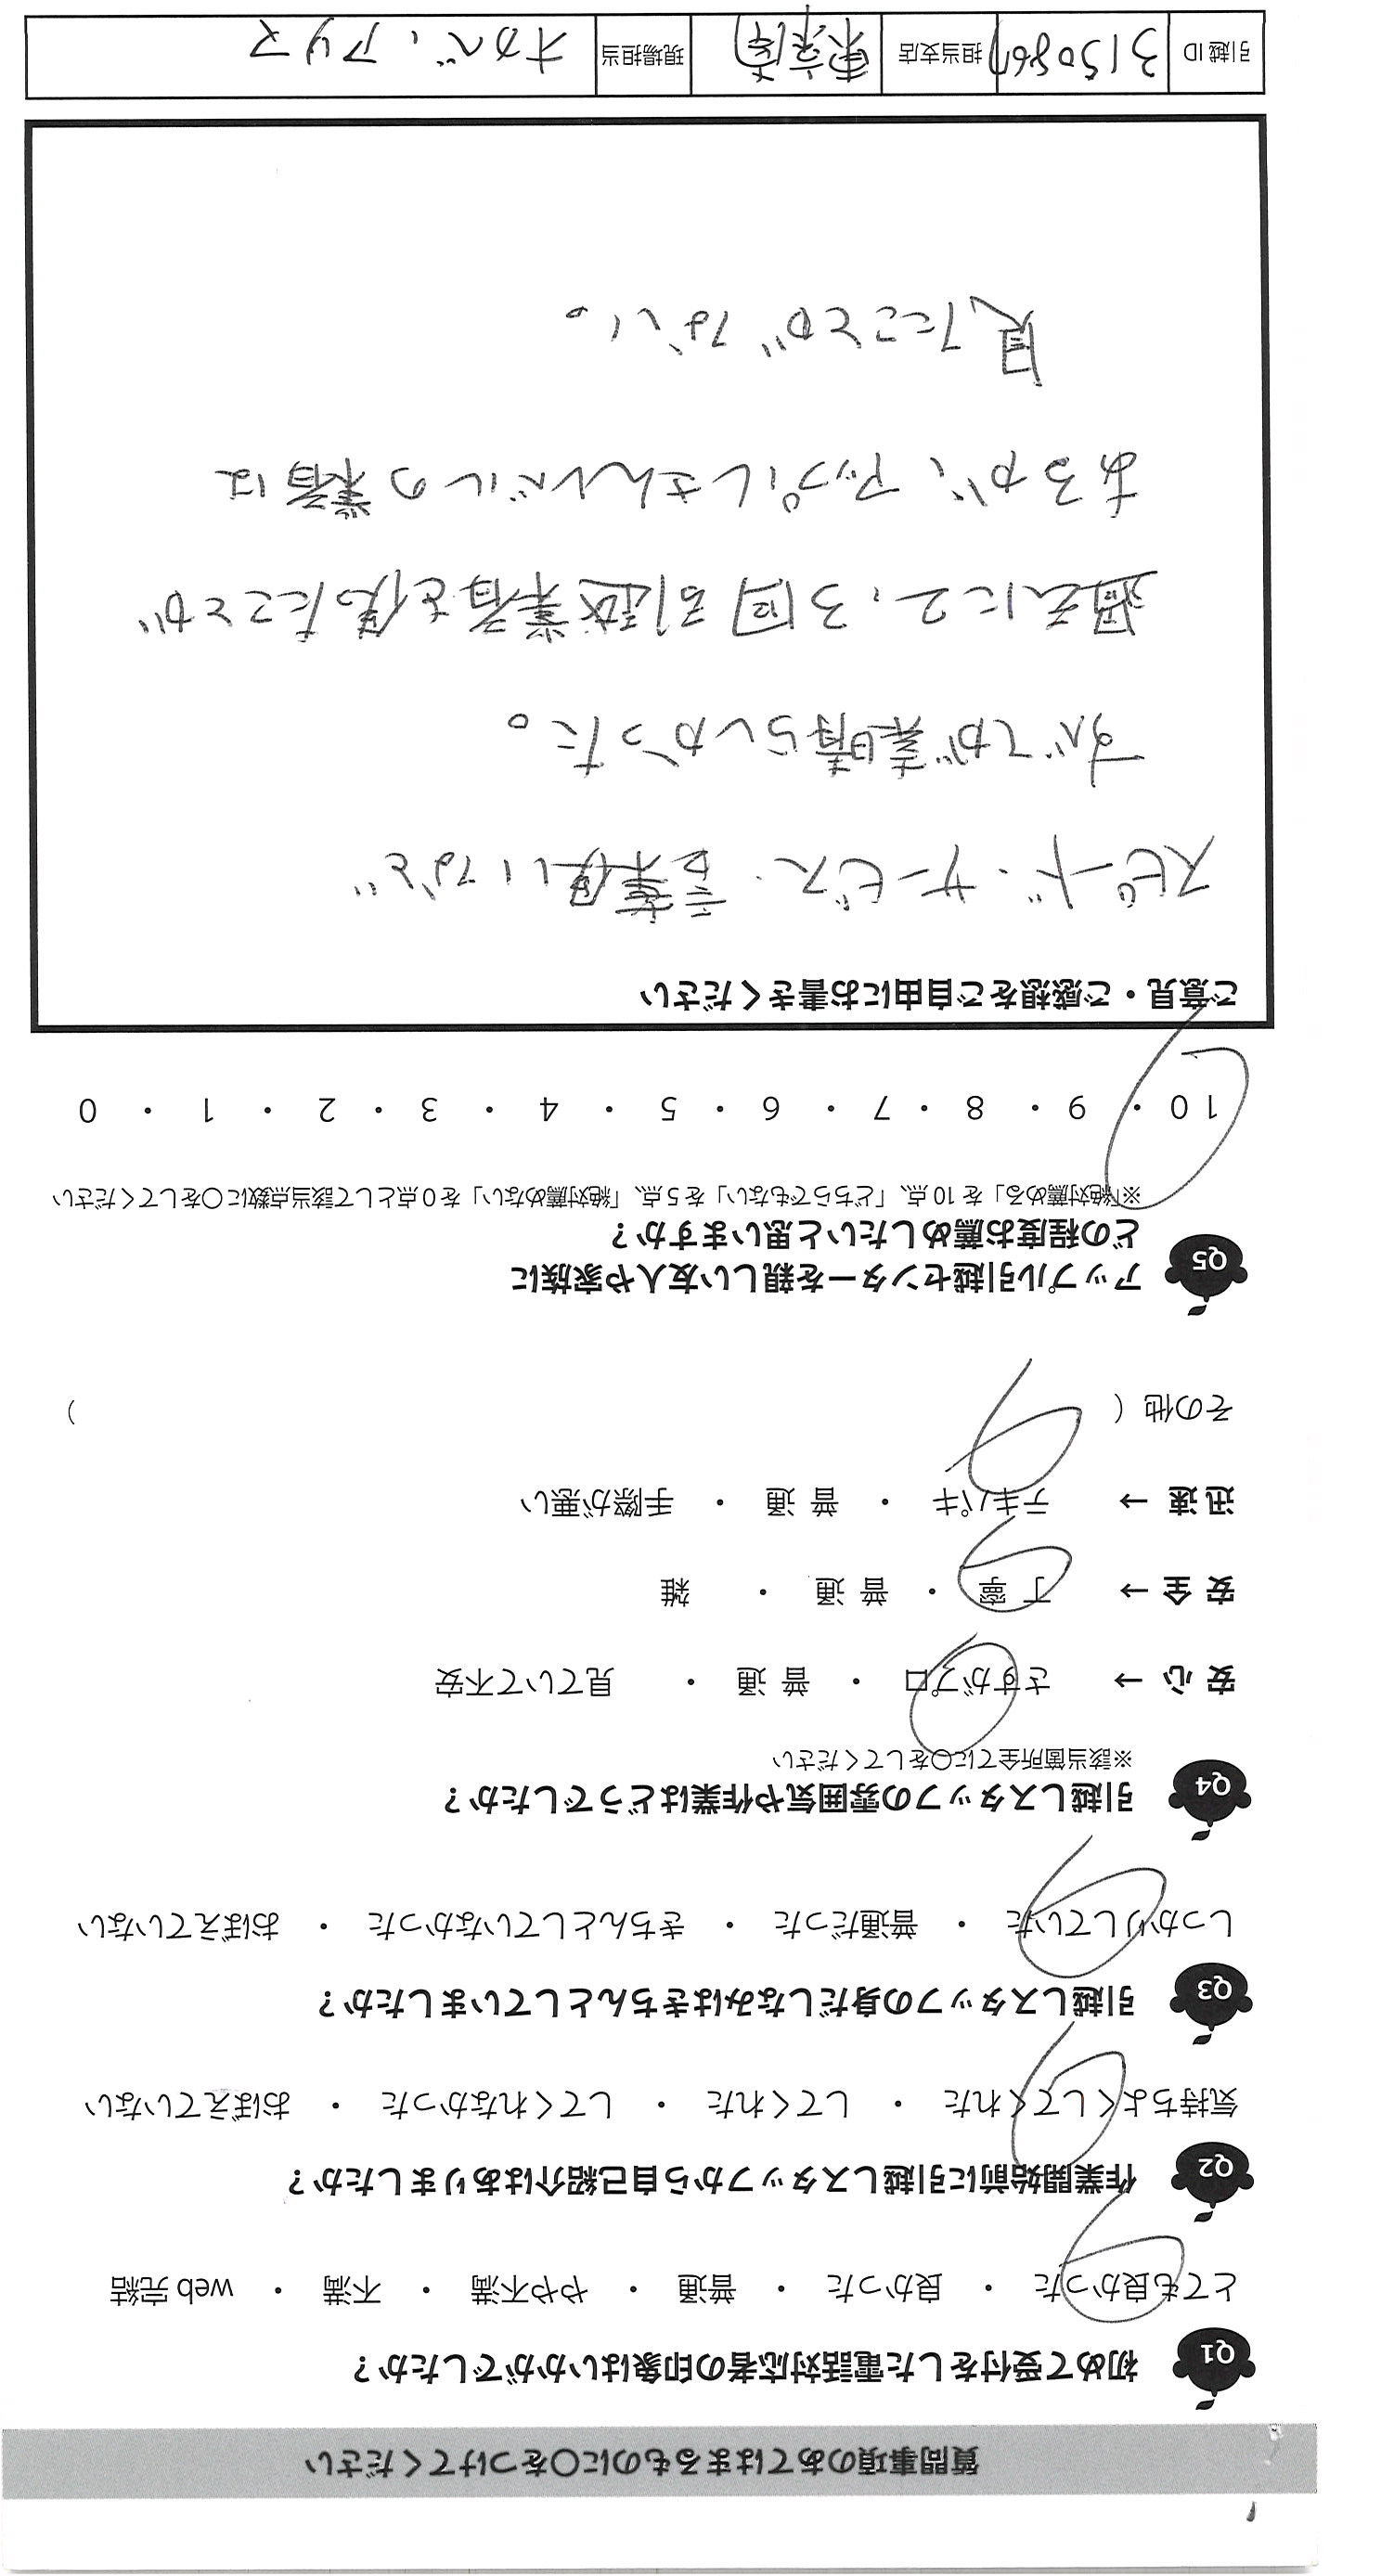 質問事項のあてはまるものに○をつけてください
Q1 初めて受付をした電話対応者の印象はいかがでしたか？
とても良かった ・ 良かった ・ 普通 ・ やや不満 ・ 不満 ・ web 完結
Q2 作業開始前に引越しスタッフから自己紹介はありましたか？
気持ちよくしてくれた ・ してくれた ・ してくれなかった ・ おぼえていない
Q3 引越しスタッフの身だしなみはきちんとしていましたか？
しっかりしていた ・ 普通だった ・ きちんとしていなかった ・ おぼえていない
Q4 引越しスタッフの雰囲気や作業はどうでしたか？
※該当箇所全てに○をしてください
安 心 → さすがプロ ・ 普 通 ・ 見ていて不安
安 全 → 丁 寧 ・ 普 通 ・ 雑
迅 速 → テキパキ ・ 普 通 ・ 手際が悪い
その他（ ）
Q5 アップル引越センターを親しい友人や家族に
どの程度お薦めしたいと思いますか？
※「絶対薦める」を 10 点、「どちらでもない」を 5 点、「絶対薦めない」を 0 点として該当点数に○をしてください
10 ・ 9 ・ 8 ・ 7 ・ 6 ・ 5 ・ 4 ・ 3 ・ 2 ・ 1 ・ 0
ご意見・ご感想をご自由にお書きください
スピード・サービス・言葉使いなど
すべてが素晴らしかった。
過去に2，3回引越業者を使ったことが
あるが、アップルさんレベルの業者は
見たことがない。
引越 ID 3150867 担当支店 東京南 現場担当 オカベ、アリマ